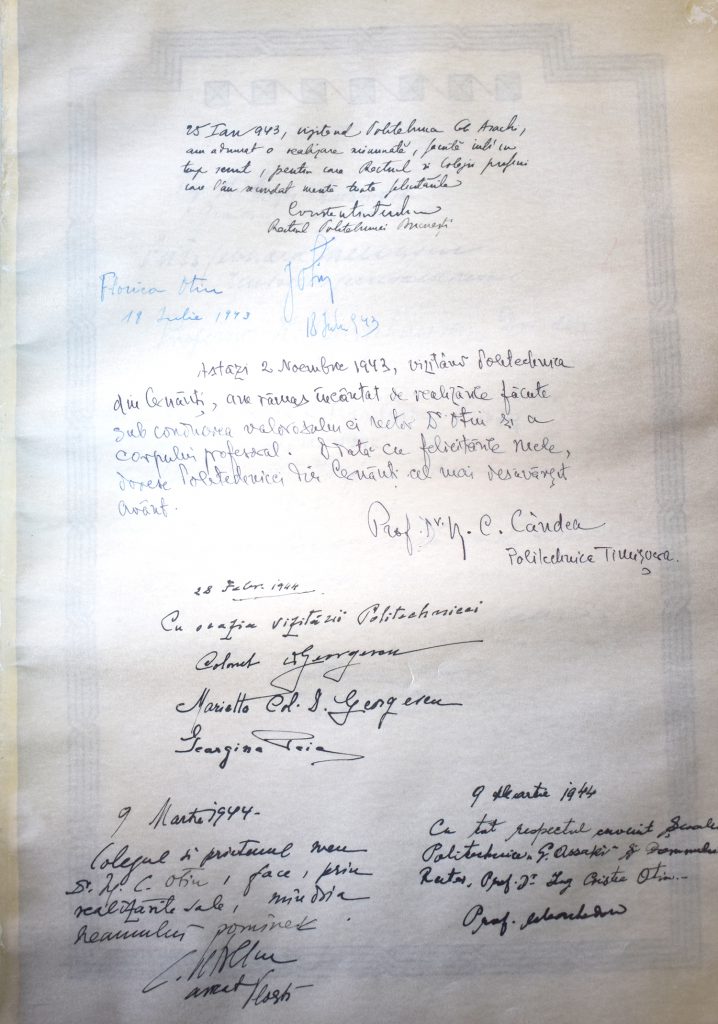 25 Ian 943, vizitând Politehnica Gh Asachi,
am admirat o realizare minunată, făcută într'un
timp scurt, pentru care Rectorul și Colegii profesori
care l'au secondat merită toate felicitările
Rectorul Politehnicei București
Florica Otin
18 Iulie 1943
18 Iulie 943
Astăzi 2 Noembrie 1943, vizitând Politechnica
din Cernăuți, am rămas încântat de realizările făcute
sub conducerea valorosului ei rector Dr Otin și a
corpului profesoral. Odată cu felicitările mele,
doresc Politechnicei din Cernăuți cel mai desăvârșit
avânt.
Prof. Dr. N. C. Cândea
Politechnica Timișoara.
28 Febr. 1944
Cu ocazia vizitării Politechnicei
Colonel Georgescu
Marietta Col. D. Georgescu
Georgina
9 Martie 1944-
Colegul și prietenul meu
C. Otin, face, prin
realizările sale, mândria
neamului
9 Martie 1944
Cu tot respectul Școale
Politechnice "G. Assaki" și Domnului
Rector, Prof. Dr Ing Cristea Otin.-
Prof.